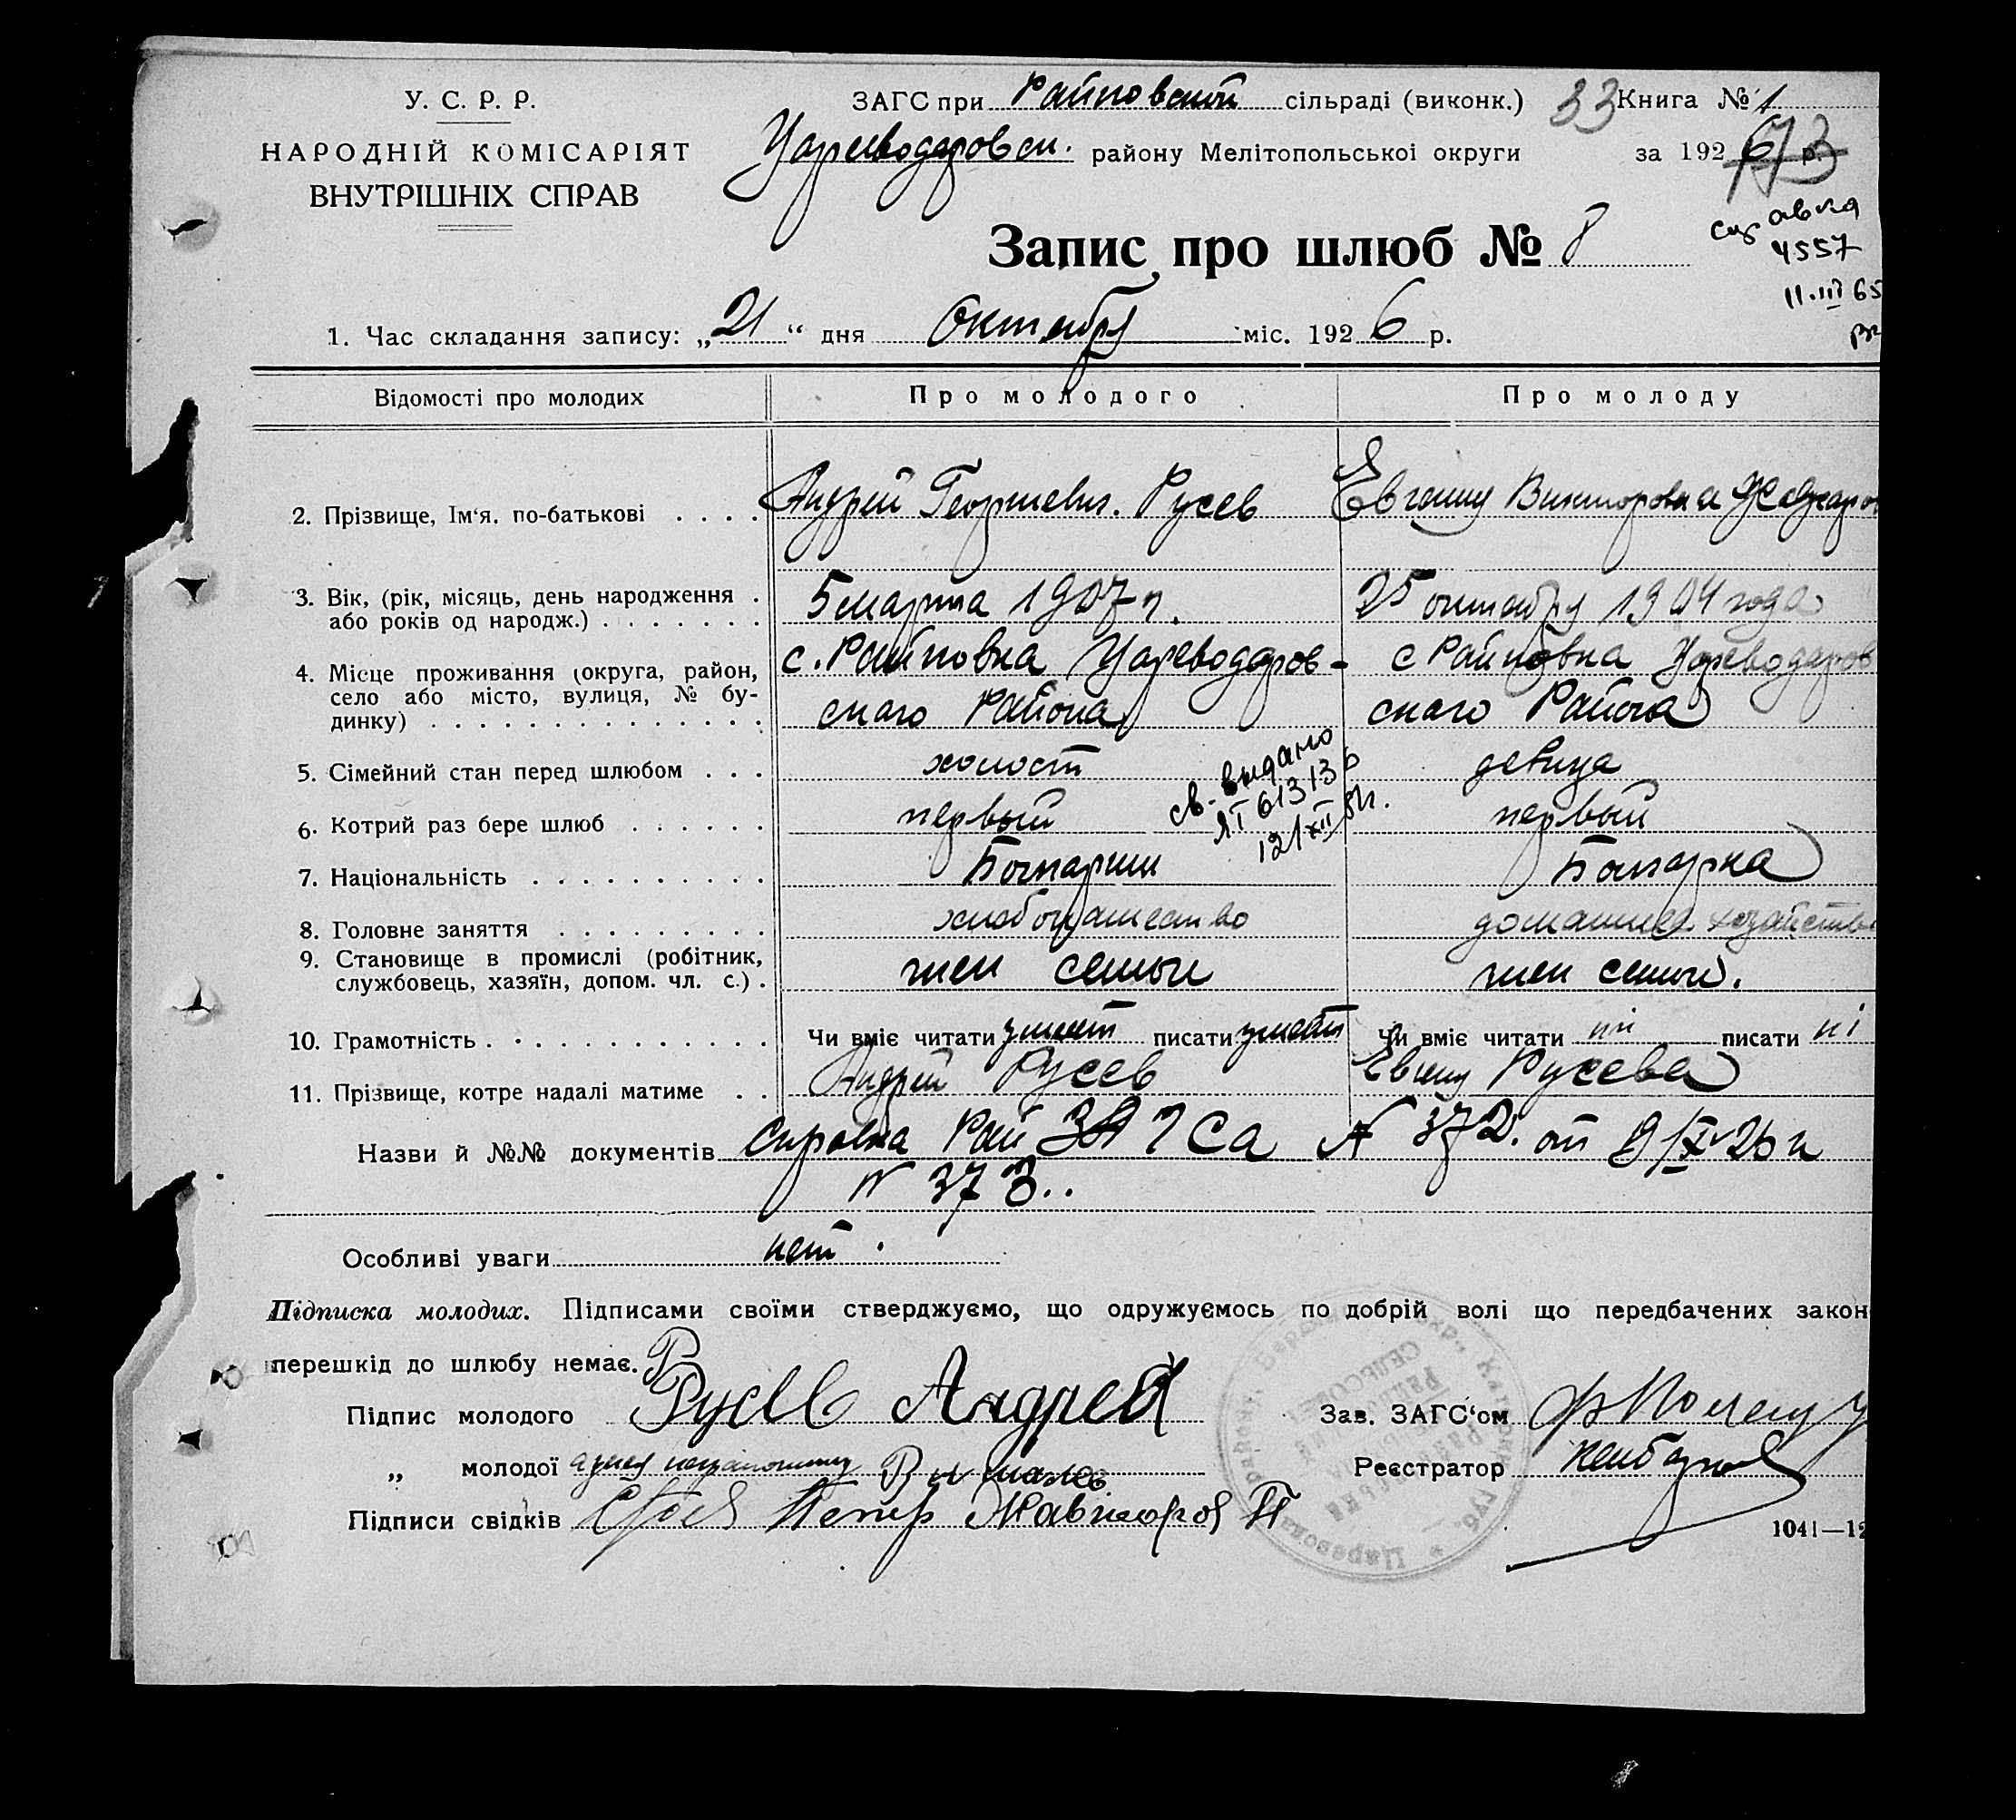 У. С. Р. Р.
НАРОДНІЙ КОМІСАРІЯТ
ВНУТРІШНІХ СПРАВ
ЗАГС при Райновской сільраді (виконк.) 33 Книга № 1
Цареводаровск. району Мелітопольської округи за 1926 р.
173
справка
4557
11.III 65
Запис про шлюб № 8
1. Час складання запису: „21“ дня Октября міс. 1926 р.
Відомості про молодих Про молодого Про молоду
2. Прізвище, Ім‘я, по-батькові Андрей Георгиевич. Русев Евгения Викторовна
3. Вік, (рік, місяць, день народження 5 марта 1907 г. 25 октября 1904 года
або років од народж.)
4. Місце проживання (округа, район, с. Райновка Цареводаров- с Райновка Цареводаров
село або місто, вулиця, № бу-
динку) ского Района ского Района
5. Сімейний стан перед шлюбом холост девица
св. выдано
ЯТ 613136
12/XII
6. Котрий раз бере шлюб первый первый
7. Національність Болгарин Болгарка
8. Головне заняття хлебопашество домашнее хозяйство
9. Становище в промислі (робітник,
службовець, хазяїн, допом. чл. с.) член семьи член семьи.
10. Грамотність Чи вміє читати умеет писати умеет Чи вміє читати ні писати ні
11. Прізвище, котре надалі матиме Андрей Русев Евгения Русева
Назви й №№ документів Справка Рай ЗАГСа № 372. от 9/X-26 г
№ 373..
Особливі уваги нет.
Підписка молодих. Підписами своїми стверджуємо, що одружуємось по добрій волі що передбачених закон
перешкід до шлюбу немає.
Підпис молодого Русев Андрей Зав. ЗАГС‘ом
„ молодої Реєстратор
Підписи свідків Петр
1041—12